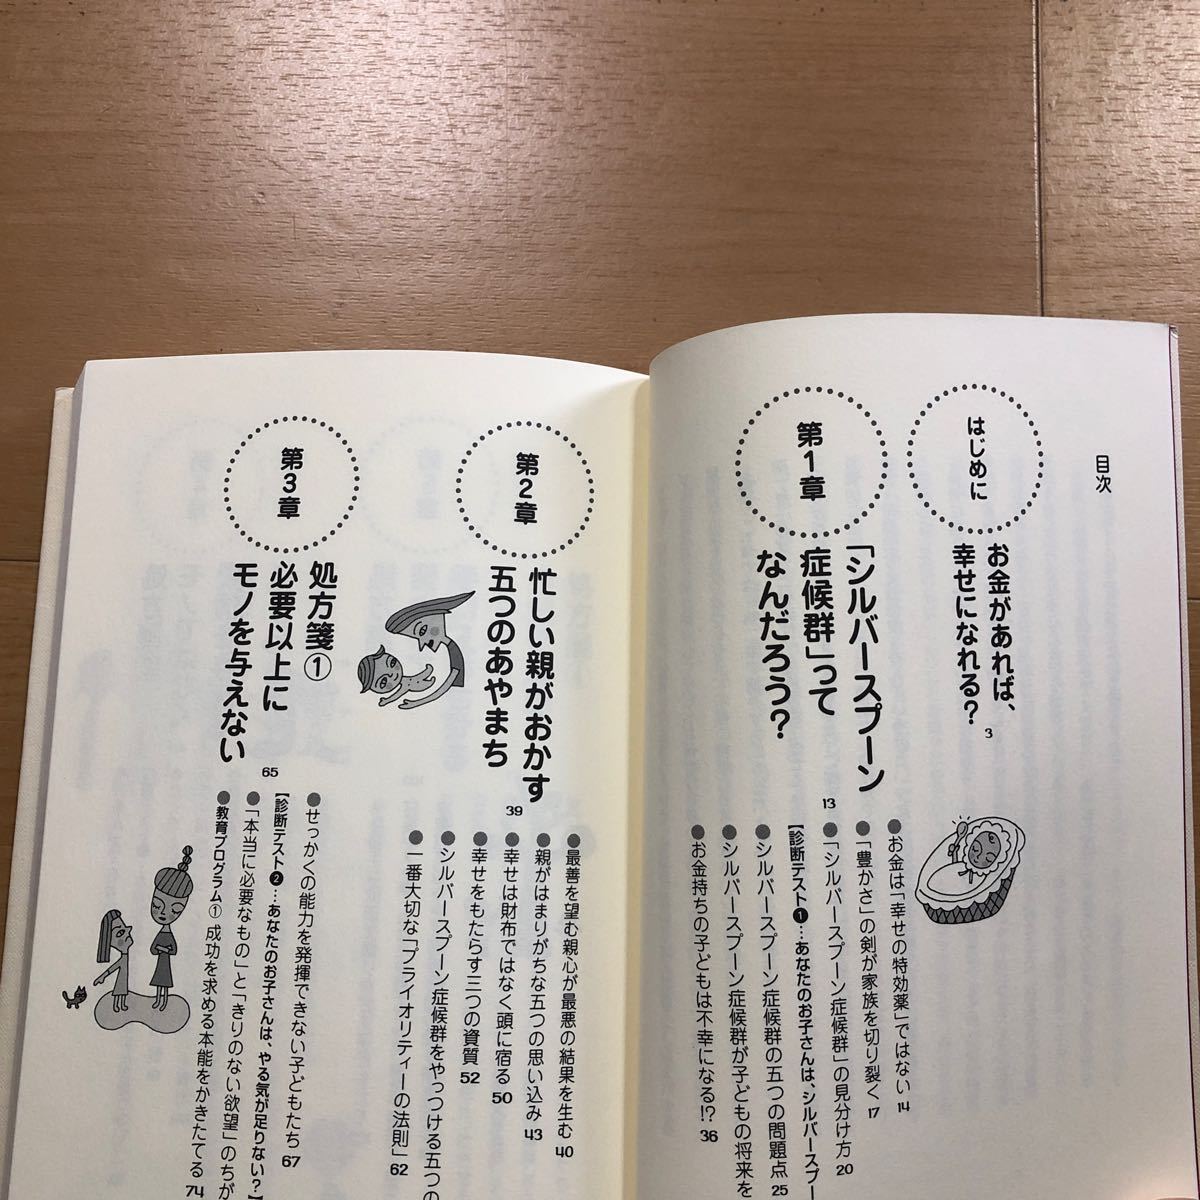 目次
はじめに
お金があれば、
幸せになれる?
3
第1章
「シルバースプーン
症候群」って
なんだろう?
13
●お金は「幸せの特効薬」ではない 14
●「豊かさ」の剣が家族を切り裂く 17
●「シルバースプーン症候群」の見分け方 20
【診断テスト❶…あなたのお子さんは、シルバースプー
●シルバースプーン症候群の五つの問題点 25
●シルバースプーン症候群が子どもの将来を
●お金持ちの子どもは不幸になる!? 36
第2章
忙しい親がおかす
五つのあやまち
39
●最善を望む親心が最悪の結果を生む 40
●親がはまりがちな五つの思い込み 43
●幸せは財布ではなく頭に宿る 50
●幸せをもたらす三つの資質 52
●シルバースプーン症候群をやっつける五つの
●一番大切な「プライオリティーの法則」 62
第3章
処方箋①
必要以上に
モノを与えない
65
●せっかくの能力を発揮できない子どもたち 67
【診断テスト❷…あなたのお子さんは、やる気が足りない?】
●「本当に必要なもの」と「きりのない欲望」のちが
●教育プログラム① 成功を求める本能をかきたてる 74